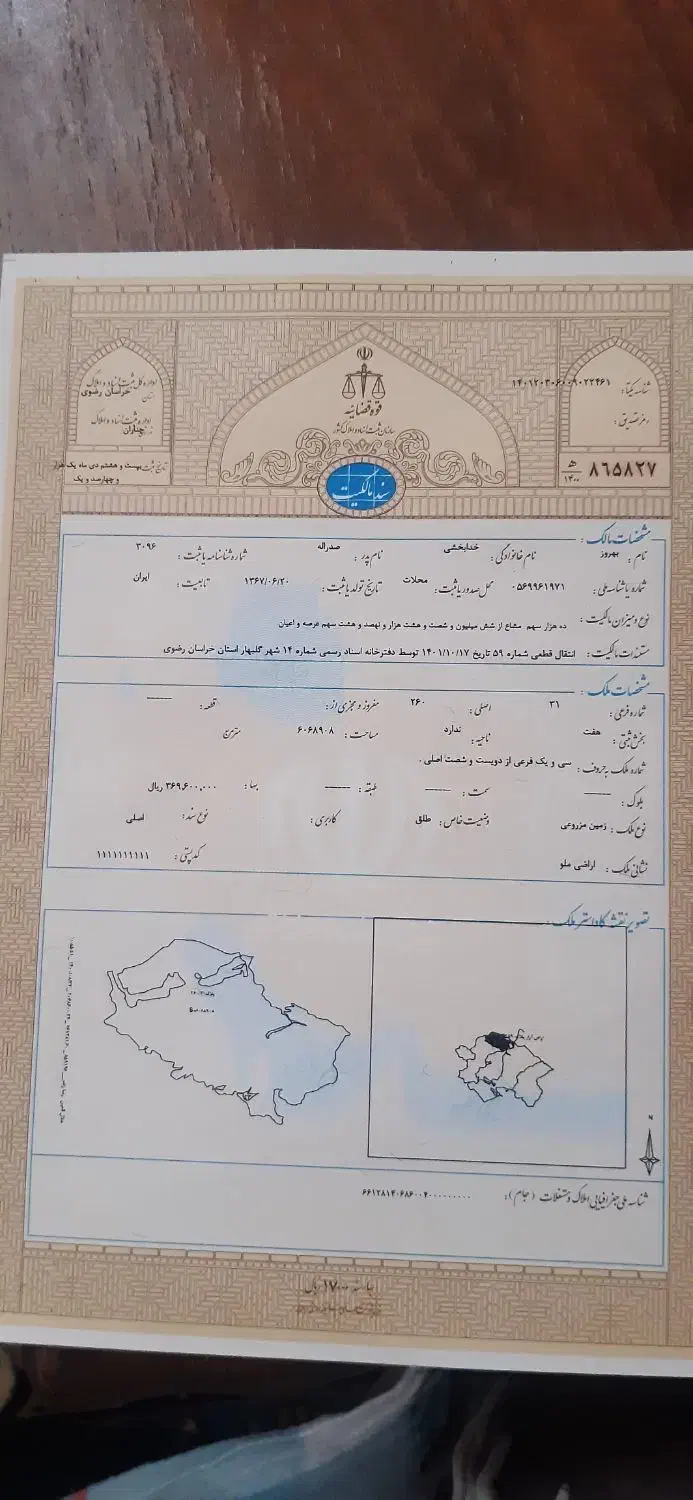 قوه قضائیه
سازمان ثبت اسناد و املاک کشور
سند مالکیت
شناسه یکتا: ۱۴۰۱۲۰۳۰۶۰۰۹۰۲۲۴۶۱
رمز تصدیق:
۸۶۵۸۲۷ ه‍ ۱۴۰۰
اداره کل ثبت اسناد و املاک
استان خراسان رضوی
اداره ثبت اسناد و املاک
چناران
تاریخ ثبت: بیست و هشتم دی ماه یک هزار
و چهارصد و یک
مشخصات مالک:
نام: بهروز نام خانوادگی: خدابخشی نام پدر: صدراله شماره شناسنامه یا ثبت: ۳۰۹۶
شماره یا شناسه ملی: ۰۵۶۹۹۶۱۹۷۱ محل صدور یا ثبت: محلات تاریخ تولد یا ثبت: ۱۳۶۷/۰۶/۲۰ تابعیت: ایران
نوع و میزان مالکیت: ده هزار سهم مشاع از شش میلیون و شصت و هشت هزار و نهصد و هشت سهم عرصه و اعیان
مستندات مالکیت: انتقال قطعی شماره ۵۹ تاریخ ۱۴۰۱/۱۰/۱۷ توسط دفترخانه اسناد رسمی شماره ۱۴ شهر گلبهار استان خراسان رضوی
مشخصات ملک:
شماره فرعی: ۳۱ اصلی: ۲۶۰ مفروز و مجزی از: ——— قطعه: ———
بخش ثبتی: هفت ناحیه: ندارد مساحت: ۶۰۶۸۹۰۸ مترمربع
شماره ملک به حروف: سی و یک فرعی از دویست و شصت اصلی .
بلوک: ——— سمت: ——— طبقه: ——— بها: ۳۶۹,۶۰۰,۰۰۰ ریال
نوع ملک: زمین مزروعی وضعیت خاص: طلق کاربری: نوع سند: اصلی
نشانی ملک: اراضی ملو کدپستی: ۱۱۱۱۱۱۱۱۱۱
تصویر نقشه کاداستر ملک:
N
شناسه ملی جغرافیایی املاک و مستغلات (جام):
بها سند ۱۷۰۰۰ ریال